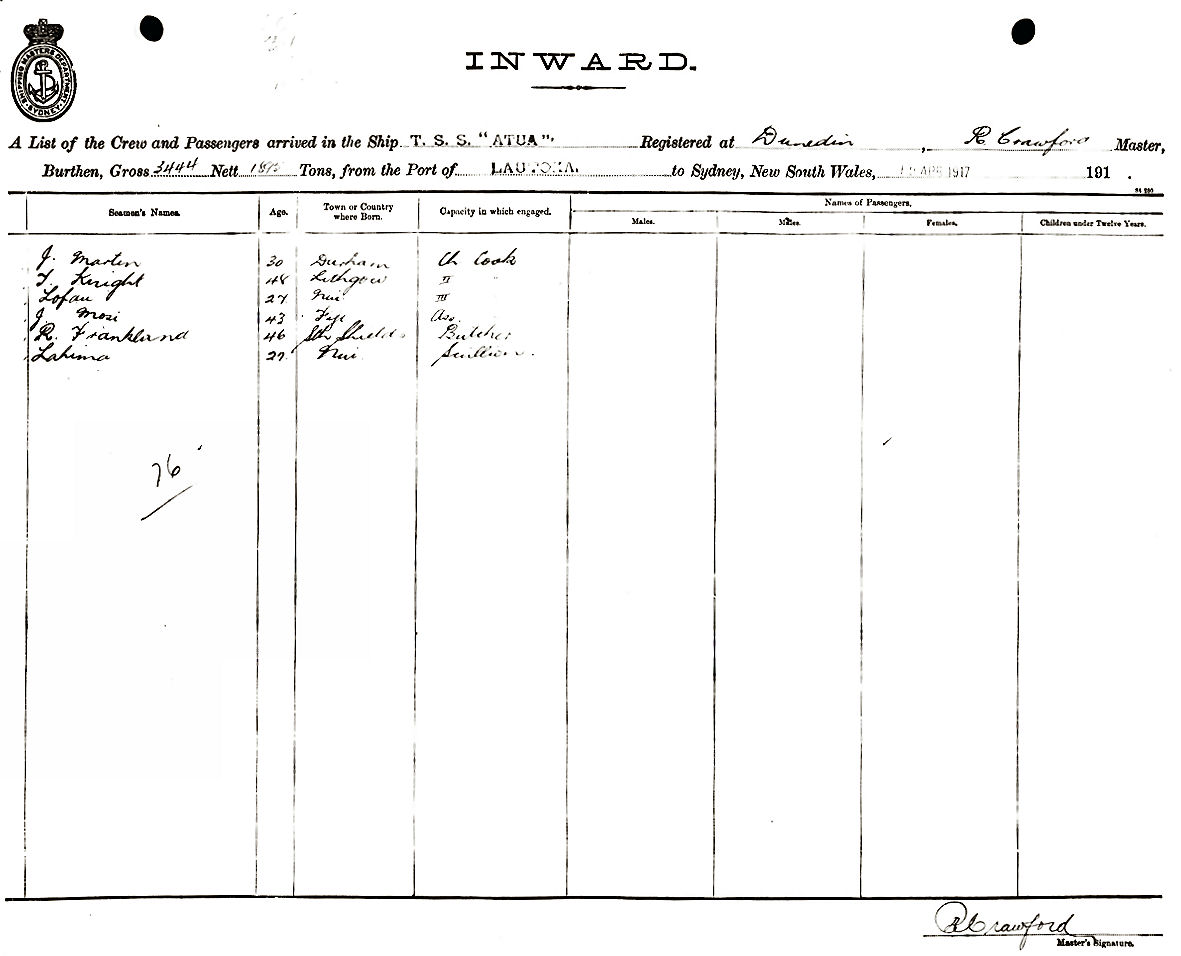 SHIPPING MASTERS DEPARTMENT SYDNEY
INWARD.
A List of the Crew and Passengers arrived in the Ship T. S. S. "ATUA" Registered at Dunedin, R Crawford Master,
Burthen, Gross 3444 Nett Tons, from the Port of LAUTOKA. to Sydney, New South Wales, APR 1917 191 .
Seamen's Names. Age. Town or Country where Born. Capacity in which engaged. Names of Passengers.
Males. Males. Females. Children under Twelve Years.
J. Martin 30 Durham Ch Cook
T. Knight 48 Lithgow II
Lofau 27 Niu III
J Mosi 43 Fiji Ass.
R. Frankland 46 Sth Shields Butcher
Lahima 27 Niu
76
R Crawford
Master's Signature.